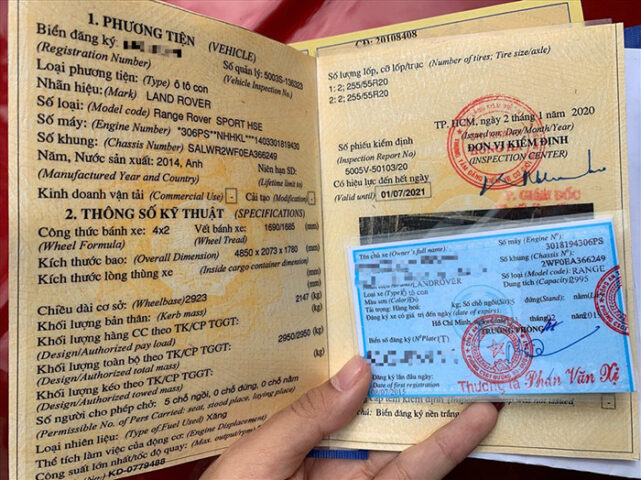 1. PHƯƠNG TIỆN (VEHICLE)
Biển đăng ký:
(Registration Number)
Số quản lý: 5003S-136323
(Vehicle Inspection No.)
Loại phương tiện: (Type) ô tô con
Nhãn hiệu: (Mark) LAND ROVER
Số loại: (Model code) Range Rover SPORT HSE
Số máy: (Engine Number) *306PS**NHHKL**1403301819430
Số khung: (Chassis Number) SALWR2WF0EA366249
Năm, Nước sản xuất: 2014, Anh
(Manufactured Year and Country)
Niên hạn SD:
(Lifetime limit to)
Kinh doanh vận tải (Commercial Use) - Cải tạo (Modification) -
2. THÔNG SỐ KỸ THUẬT (SPECIFICATIONS)
Công thức bánh xe: 4x2 Vết bánh xe: 1690/1685 (mm)
(Wheel Formula) (Wheel Tread)
Kích thước bao: (Overall Dimension) 4850 x 2073 x 1780 (mm)
Kích thước lòng thùng xe (Inside cargo container dimension)
(mm)
Chiều dài cơ sở: (Wheelbase) 2923 (mm)
Khối lượng bản thân: (Kerb mass) 2147 (kg)
Khối lượng hàng CC theo TK/CP TGGT:
(Design/Authorized pay load)
Khối lượng toàn bộ theo TK/CP TGGT: 2950/2950 (kg)
(Design/Authorized total mass)
Khối lượng kéo theo TK/CP TGGT:
(Design/Authorized towed mass)
Số người cho phép chở: 5 chỗ ngồi, 0 chỗ đứng, 0 chỗ nằm
(Permissible No. of Pers Carried: seat, stood place, laying place)
Loại nhiên liệu: (Type of Fuel Used) Xăng
Thể tích làm việc của động cơ: (Engine Displacement)
Công suất lớn nhất/tốc độ quay: (Max. output/rpm)
No: KD-0779488
CĐ: 20108408
Số lượng lốp, cỡ lốp/trục (Number of tires; Tire size/axle)
1: 2; 255/55R20
2: 2; 255/55R20
TP. HCM, ngày 2 tháng 1 năm 2020
(Issued on: Day/Month/Year)
Số phiếu kiểm định
(Inspection Report No)
5005V-50103/20
ĐƠN VỊ KIỂM ĐỊNH
(INSPECTION CENTER)
Có hiệu lực đến hết ngày
(Valid until) 01/07/2021
P. GIÁM ĐỐC
Tên chủ xe (Owner's full name):
Số máy (Engine N°):
3018194306PS
Số khung (Chassis N°):
2WF0EA366249
LANDROVER
Số loại (Model code): RANGE
Loại xe (Type) ô tô con
Dung tích (Capacity) 2995
Màu sơn (Color)
kg; Số chỗ ngồi
đứng (Stand)
Tải trọng: Hàng hoá:
Đăng ký xe có giá trị đến ngày (date of expiry)
Hồ Chí Minh
TRƯỞNG PHÒNG
Biển số đăng ký (N° Plate)
Đăng ký lần đầu ngày
Date of first registration
Thượng tá Phan Văn
Biển đăng ký nền trắng